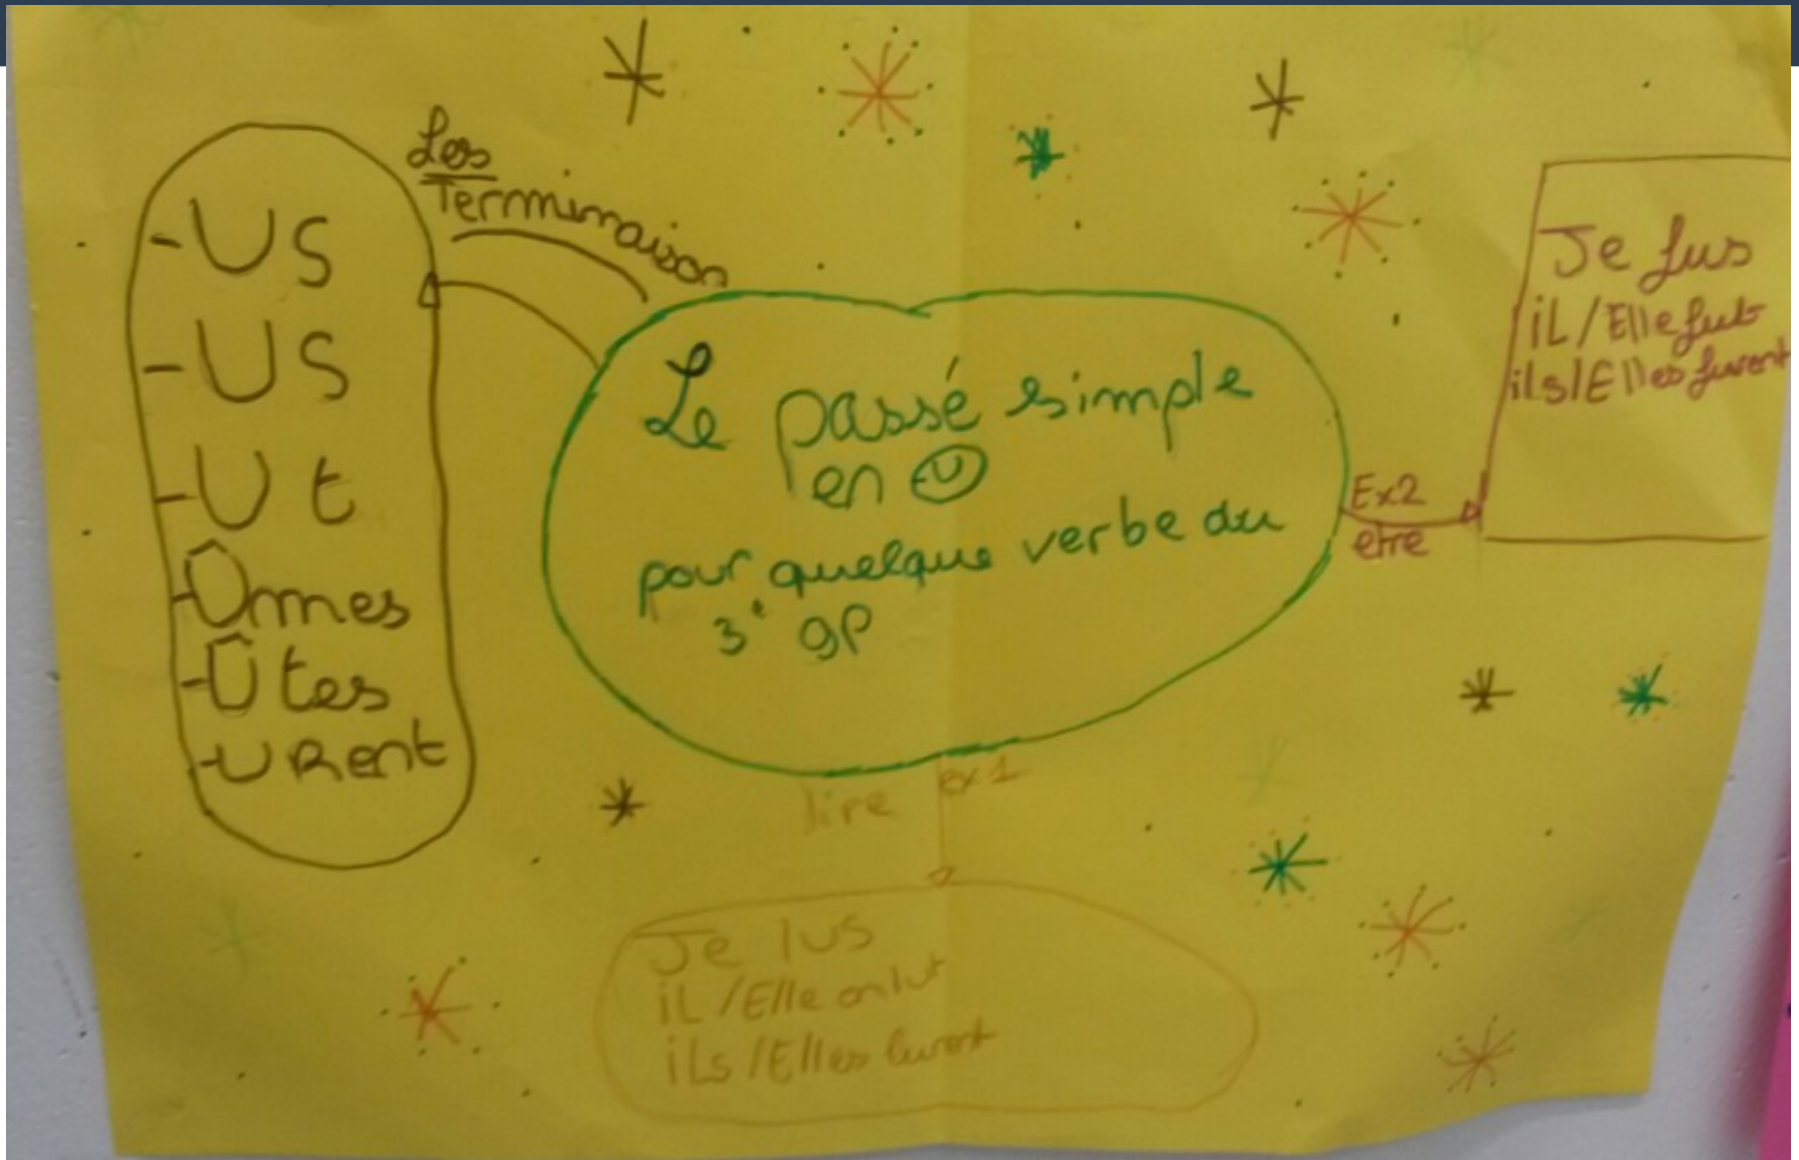 Les
Terminaison
-US
-US
-Ut
-Ûmes
-Ûtes
-URent
Le passé simple
en U
pour quelque verbe du
3e gp
Ex2
etre
Je fus
iL/Elle fut
ils/Elles furent
lire ex1
Je lus
iL/Elle on lut
iLs/Elles lurent